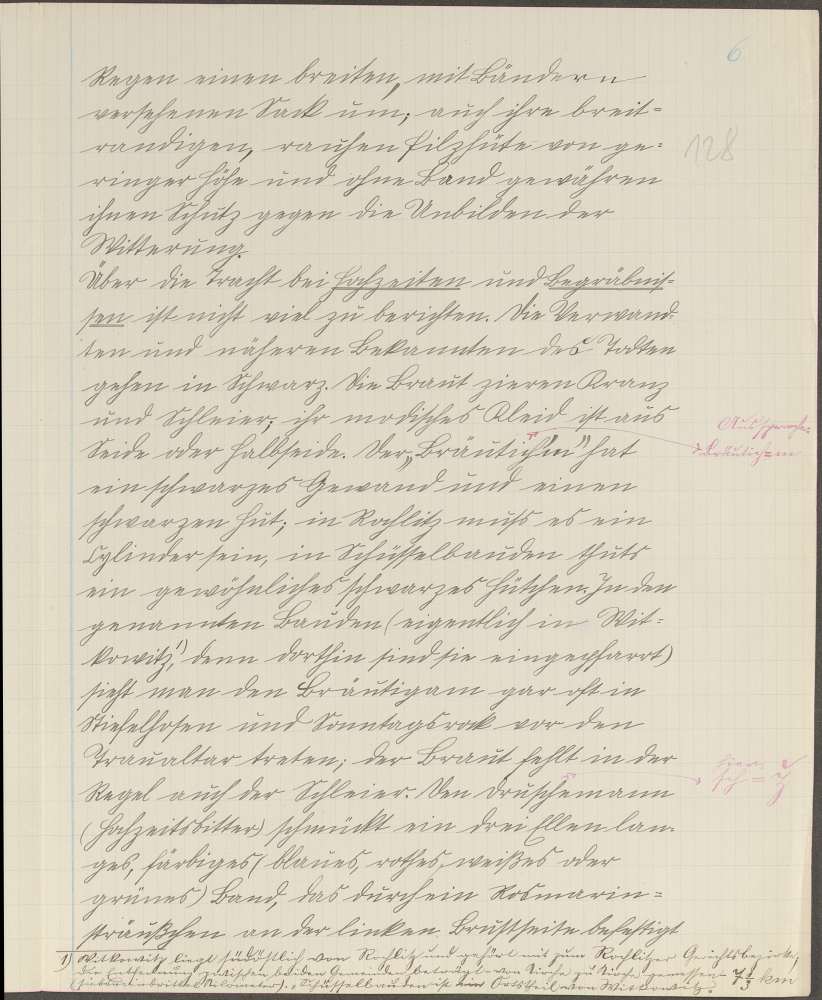 6
Regen einen breiten, mit Bändern
versehenen Sack um; auch ihre breit=
randigen, rauhen Filzhüte von ge=
128
ringer Höhe und ohne Band gewähren
ihnen Schutz gegen die Unbilden der
Witterung.
Über die Tracht bei Hochzeiten und Begräbnis=
sen ist nicht viel zu berichten. Die Verwand=
ten und näheren Bekannten des Todten
gehen in Schwarz. Die Braut zieren Kranz
und Schleier; ihr modisches Kleid ist aus
Aussprache:
Seide oder Halbseide. Der „Bräutich'm" hat
Bräutich=m
ein schwarzes Gewand und einen
schwarzen Hut; in Rochlitz muß es ein
Cylinder sein, in Schüsselbauden thuts
ein gewöhnliches schwarzes Hütchen. In den
genannten Bauden (eigentlich in Wit=
kowitz,¹) denn dorthin sind sie eingepfarrt)
sieht man den Bräutigam gar oft in
Stiefelhosen und Sonntagsrock vor den
Traualtar treten; der Braut fehlt in der
Regel auch der Schleier. Den Druschemann
sch =
(Hochzeitsbitter) schmückt ein drei Ellen lan=
ges, färbiges (blaues, rothes, weißes oder
grünes) Band, das durch ein Rosmarin=
sträußchen an der linken Brustseite befestigt
1) Witkowitz liegt südöstlich von Rochlitz und gehört mit zum Rochlitzer Gerichtsbezirke;
die Entfernung zwischen beiden Gemeinden beträgt von Kirche zu Kirche gemessen 7 1/3 km
(sieben ein drittel Kilometer). Schüsselbauden ist ein Ortsteil von Witkowitz.